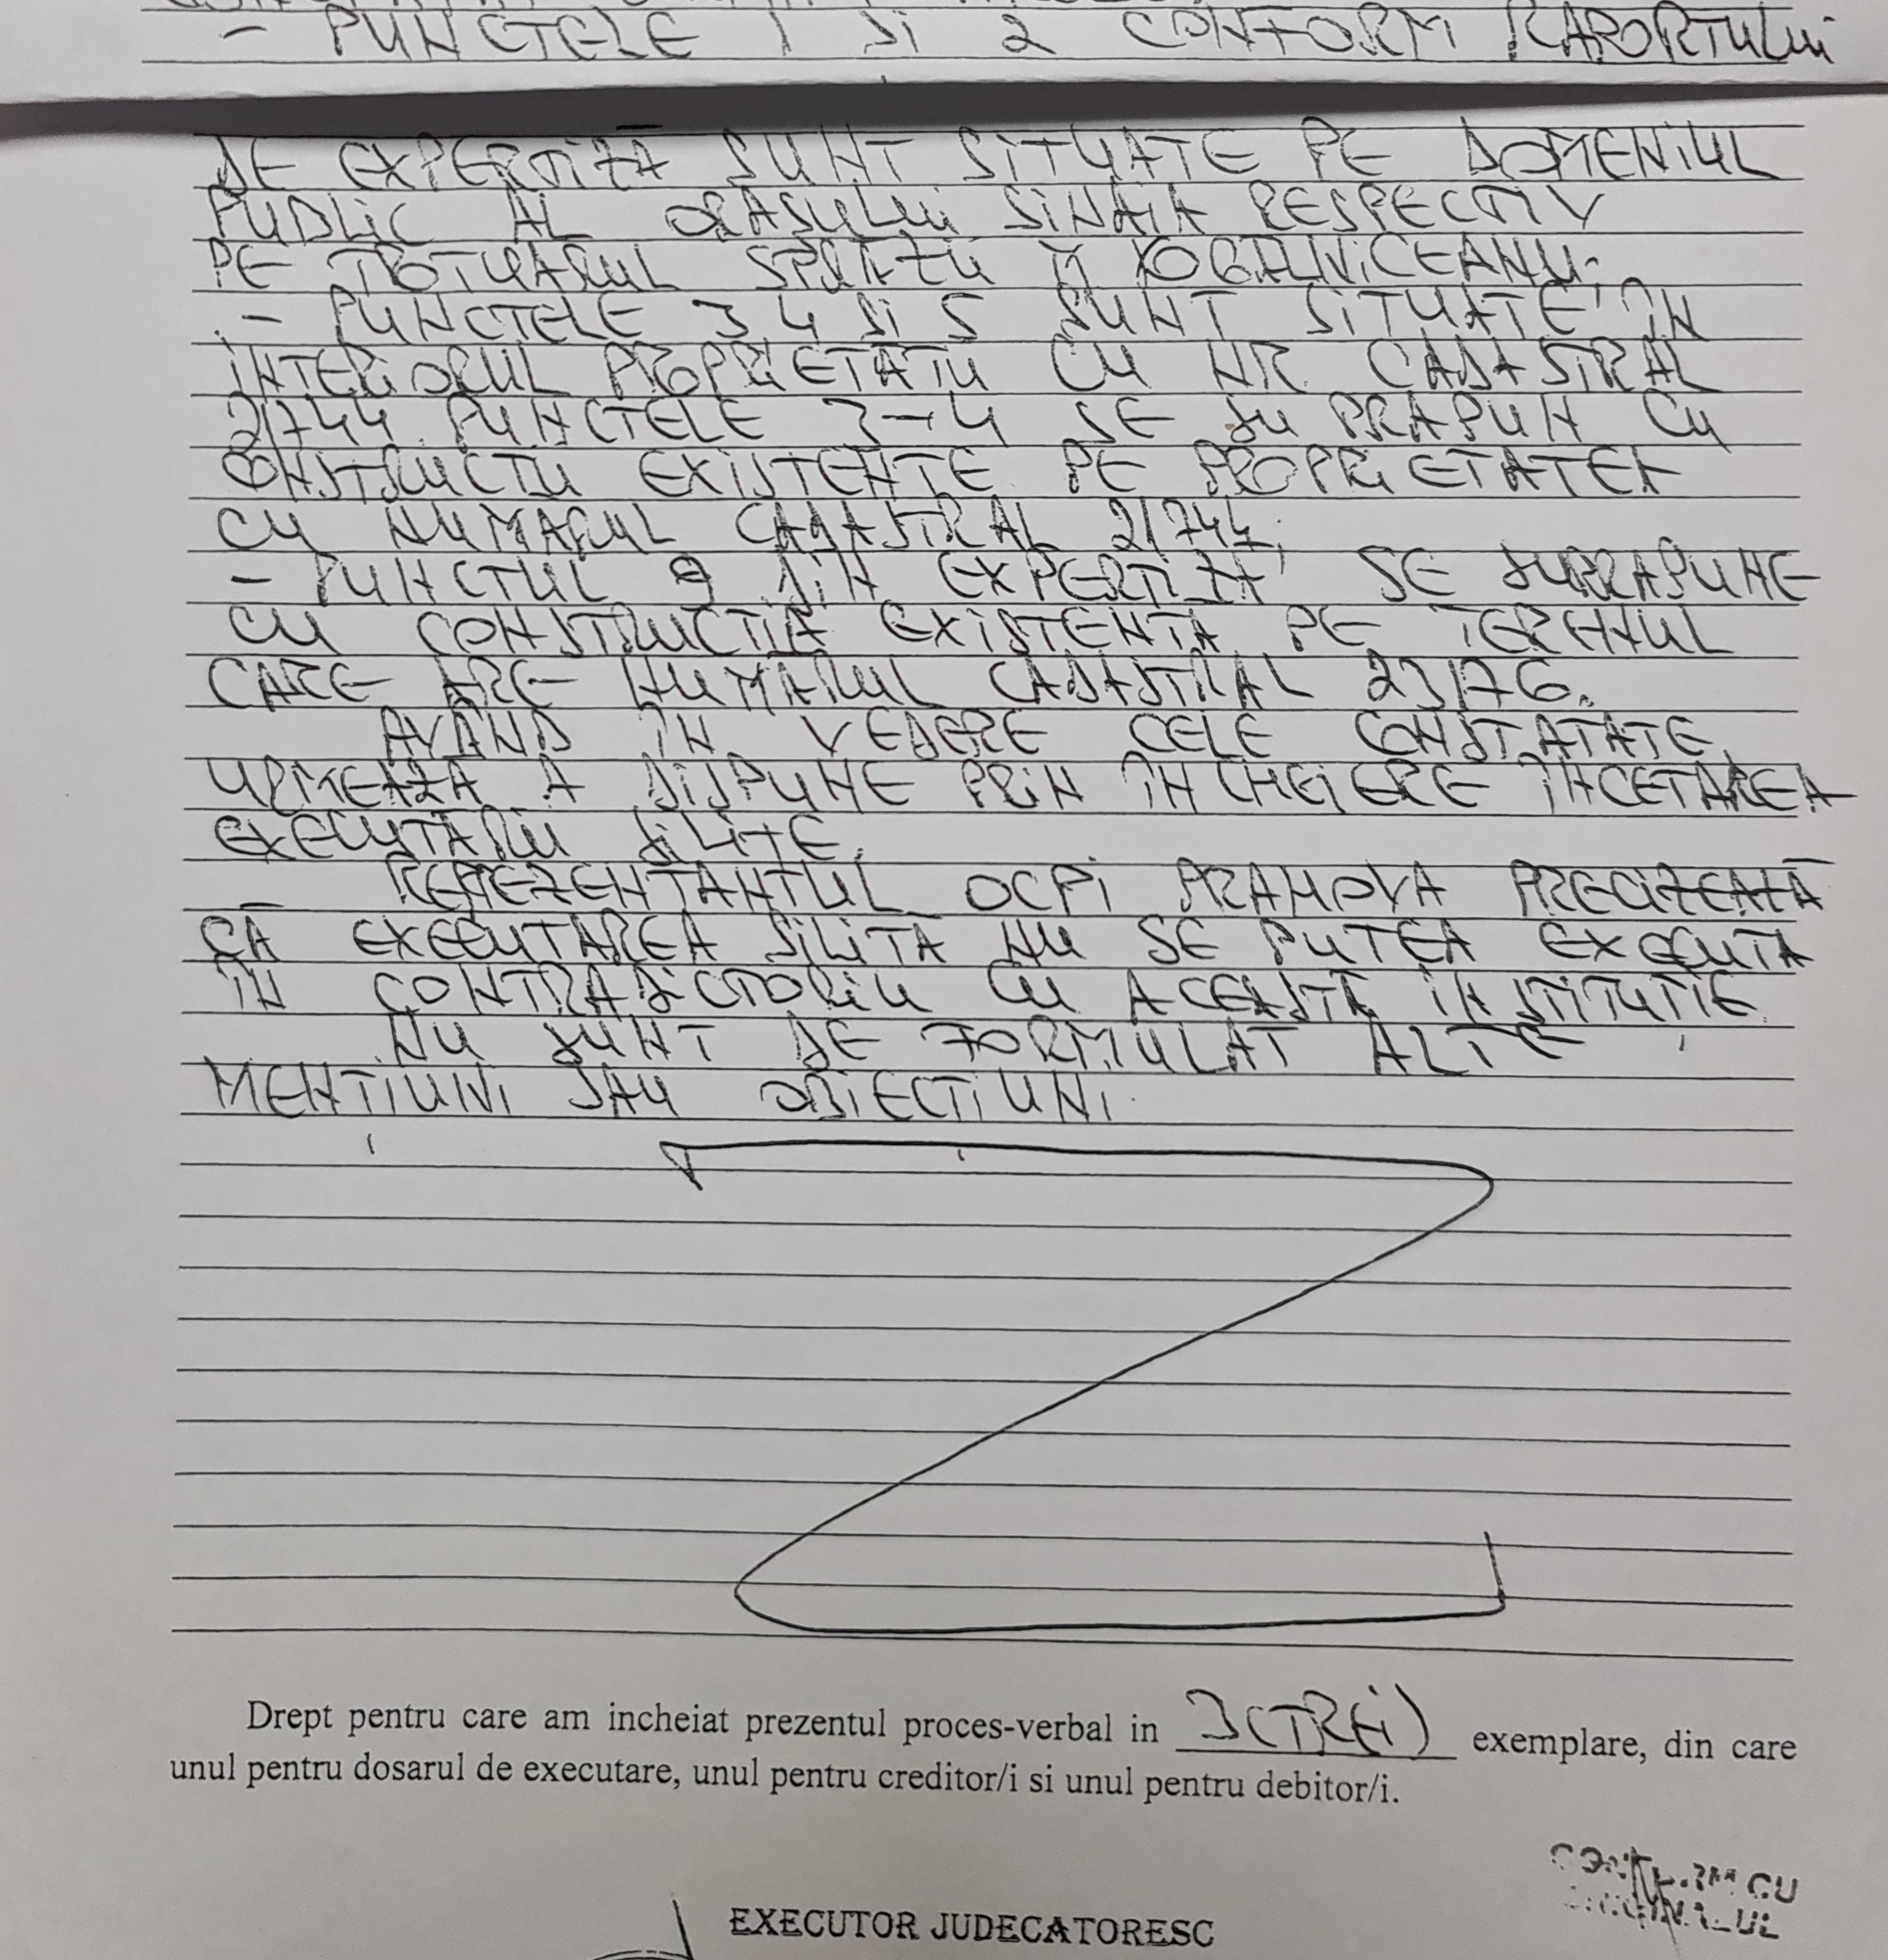 - PUNCTELE 1 SI 2 CONFORM RAPORTULUI
DE EXPERTIZĂ SUNT SITUATE PE DOMENIUL
PUBLIC AL ORASULUI SINAIA RESPECTIV
PE TROTUARUL STRAZII M KOGALNICEANU.
- PUNCTELE 3 4 SI 5 SUNT SITUATE ÎN
INTERIORUL PROPRIETATII CU NR CADASTRAL
21744 PUNCTELE 3-4 SE SUPRAPUN CU
CONSTRUCTII EXISTENTE PE PROPRIETATEA
CU NUMARUL CADASTRAL 21744;
- PUNCTUL 9 DIN EXPERTIZA SE SUPRAPUNE
CU CONSTRUCTIA EXISTENTA PE TERENUL
CARE ARE NUMARUL CADASTRAL 23176.
AVÂND ÎN VEDERE CELE CONSTATATE,
URMEAZA A DISPUNE PRIN ÎNCHEIERE ÎNCETAREA
EXECUTARII SILITE.
REPREZENTANTUL OCPI PRAHOVA PRECIZEAZĂ
CĂ EXECUTAREA SILITĂ NU SE PUTEA EXECUTA
ÎN CONTRADICTORIU CU ACEASTĂ INSTITUTIE
NU SUNT DE FORMULAT ALTE
MENTIUNI SAU OBIECTIUNI.
Drept pentru care am incheiat prezentul proces-verbal in 3(TREi) exemplare, din care
unul pentru dosarul de executare, unul pentru creditor/i si unul pentru debitor/i.
CONFORM CU
ORIGINALUL
EXECUTOR JUDECATORESC